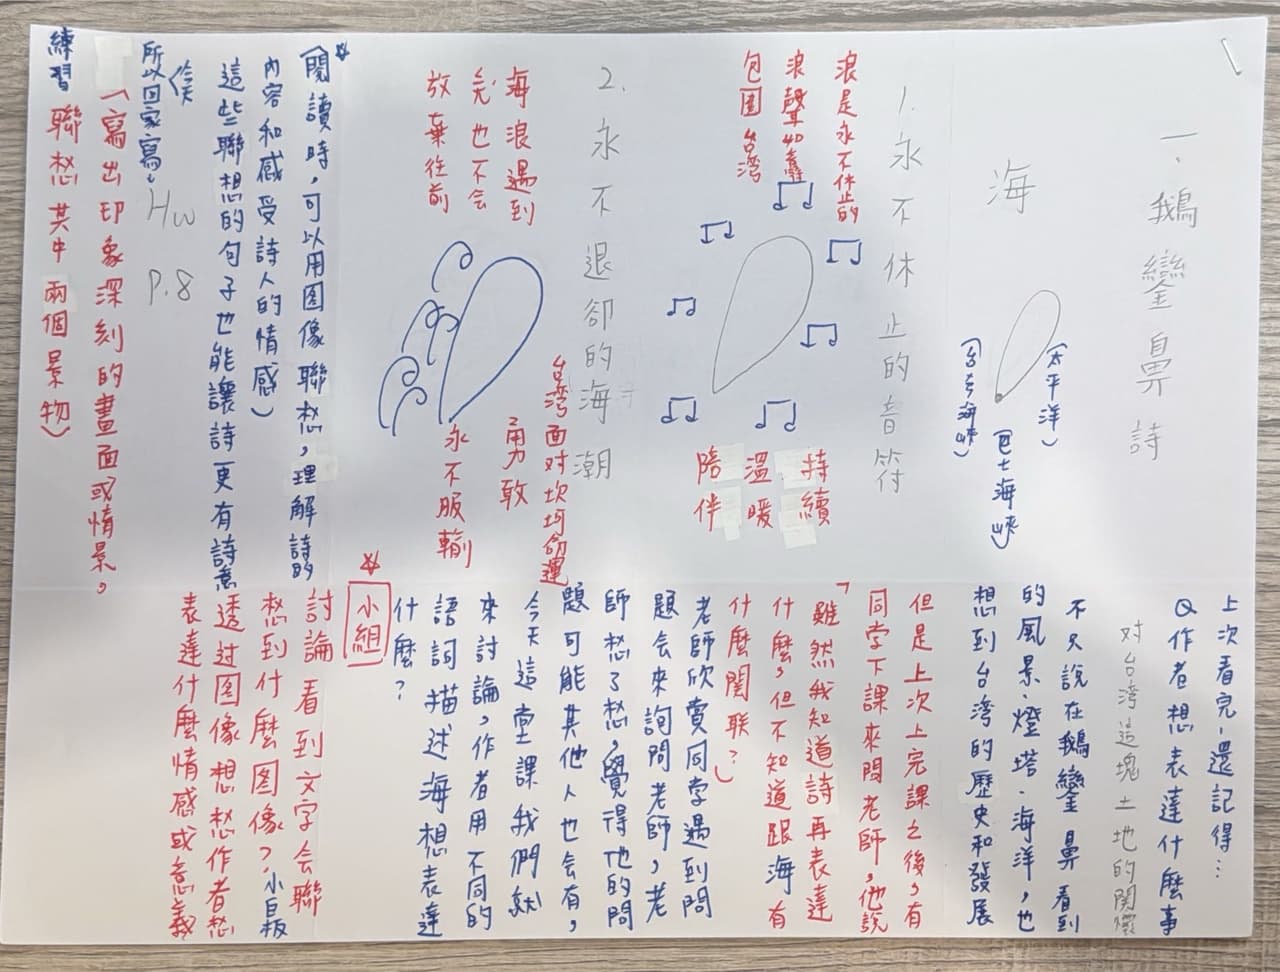 一、鵝鑾鼻詩
海
(太平洋)
(巴士海峽)
(台灣海峽)
1.永不休止的音符
浪是永不休止的
浪聲如奏
包圍台灣
持續
溫暖
陪伴
2.永不退卻的海潮
海浪遇到
也不會
放棄往前
台湾面对坎坷命運
勇敢
永不服輸
(閱讀時,可以用图像聯想,理解詩的
內容和感受詩人的情感)
這些聯想的句子也能讓詩更有詩意
所以回家寫
HW
P.8
「寫出印象深刻的畫面或情景,
練習聯想其中兩個景物)
上次看完,還記得…
Q作者想表達什麼事
对台湾這塊土地的関懷
不只說在鵝鑾鼻看到
的風景、燈塔、海洋,也
想到台湾的歷史和發展
但是上次上完課之後,有
同学下課來問老師,他說
「雖然我知道詩再表達
什麼,但不知道跟海有
什麼関联?」
老師欣賞同学遇到問
題会來詢問老師,老
師想了想,覺得他的問
題可能其他人也会有,
今天這堂課我們就
來討論,作者用不同的
語詞描述海想表達
什麼?
小組
討論看到文字会聯
想到什麼图像?小白板
透过图像想想作者想
表達什麼情感或意義